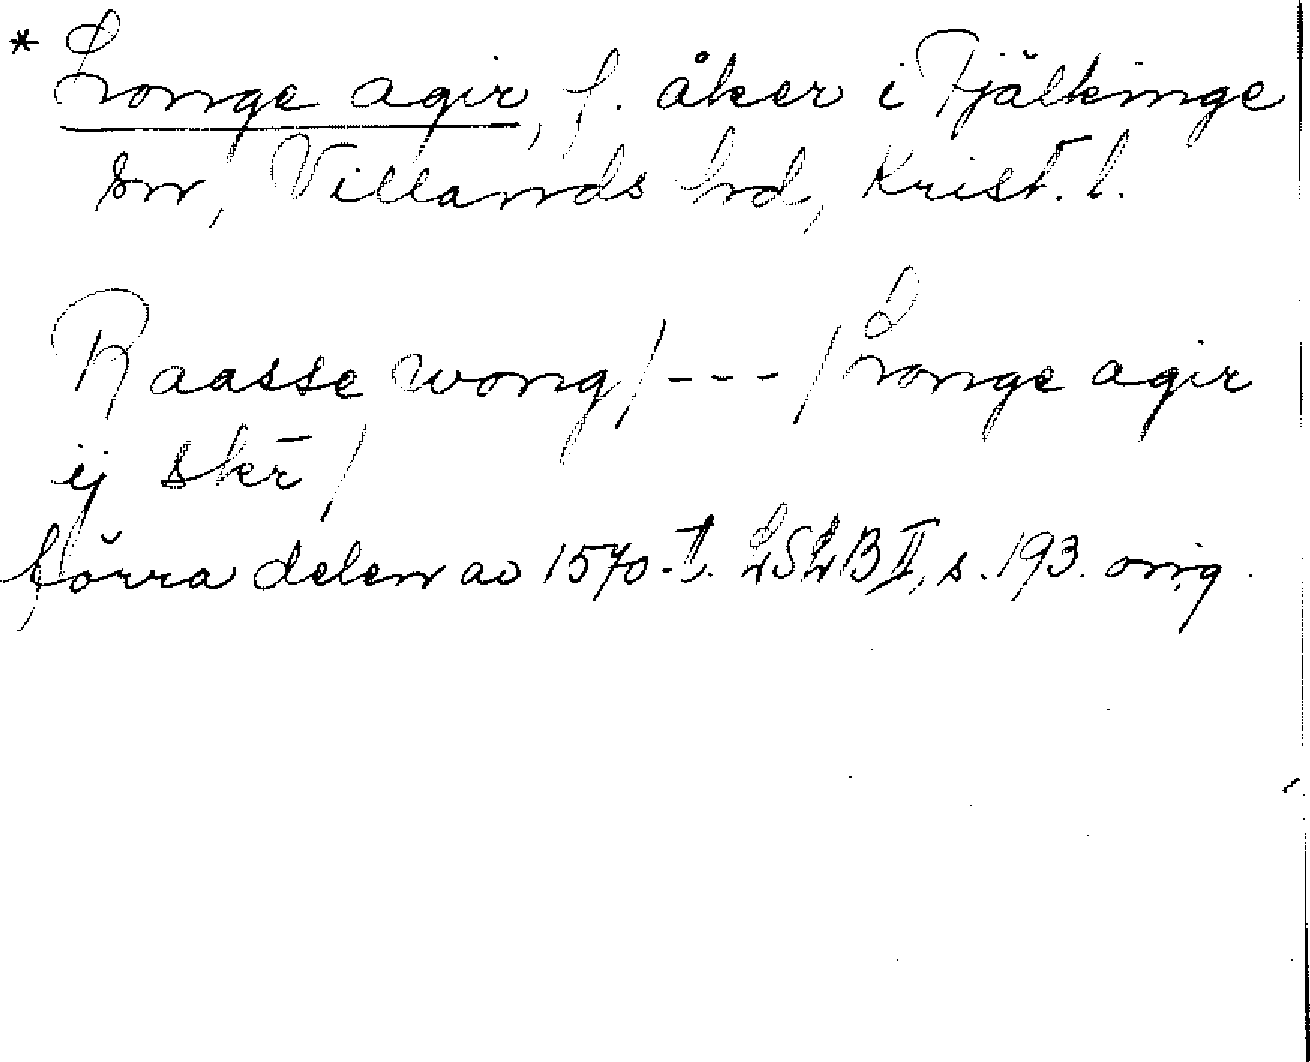 * Longe agir, f. åker i Fjälkinge
sn, Villands hd, Krist. l.
Raasse wong/---/Longe agir
ij skr̄/
förra delen av 1570-t. LSLB II, s. 193. orig.